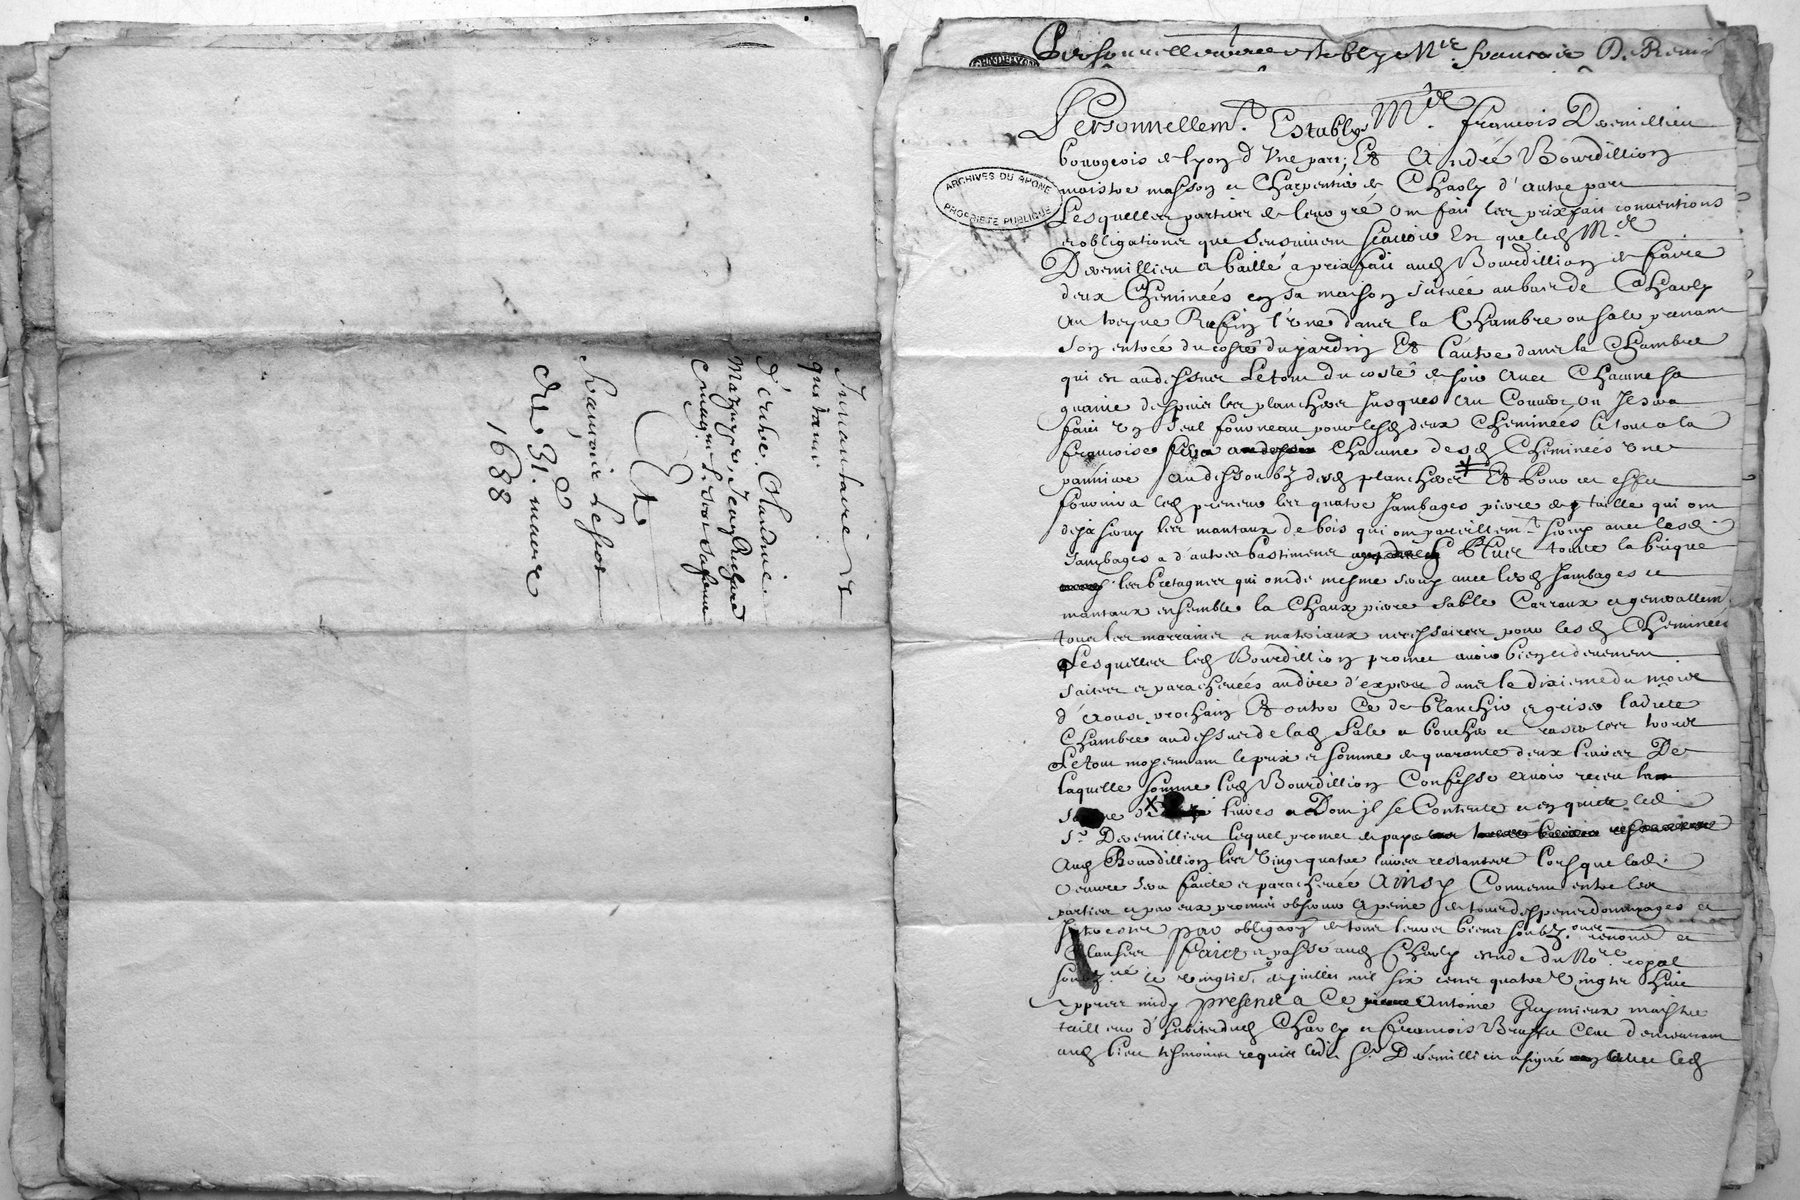 Inuantaire &
quittance
d'entre Claudine
Mazuyer, Jean Richard
Et
françois
du 31. mars
1688
Personnellement establys Mre. francois D. Remi
Personnellemt. Establys Mre. francois Deremillieu
bourgeois de lyon d'Une part, Et André Bourdillion
maistre masson et Charpentier de Charly d'autre part
Lesquelles parties de leur gré ont fait les prixfait conventions
et obligations que sensuivent scavoir Est que led Mre.
Deremillieu a baillé a prixfait aud Bourdillion de faire
deux Cheminées en sa maison scituée au bas de Charly
l'une dans la Chambre ou sale prenant
son entrée du costé du jardin Et l'autre dans la Chambre
qui est au dessus Le tout du costé de soir avec Chacune sa
guaine despuis les planchers jusques au Couvert ou Il sera
fait un seul fourneau pour lesd deux Cheminées le tout a la
francoise sera Chacune desd Cheminées une
au dessoubz desd planchers Et pour cet effet
fournira led preneur les quatre jambages pierre de taille qui ont
deja servy les mantaux de bois qui ont pareillemt. servy avec lesd.
jambages a d'autres bastiments plus toute la brique
les bretagnes qui ont de mesme servy avec lesd jambages et
mantaux ensemble la Chaux pierre sable Carraux et generallemt.
tous les marrains et materiaux necessaires pour lesd Cheminées
Lesquelles led Bourdillion promet avoir bien et deuement
faites et parachevées au dire d'expers dans le dixieme du mois
d'Aoust prochain Et outre Ce de blanchir et griser ladite
Chambre au dessus de lad Sale et boucher et raser les trous
Le tout moyennant le prix et somme de quarante deux livres De
laquelle somme led Bourdillion Confesse avoir receu la
somme livres Dont il se Contente et en quicte led.
Sr. Deremillieu lequel promet de payer
Aud Bourdillion les vingt quatre livres restantes lors que lad.
oeuvre sera faicte et parachevée Ainsy Convenu entre les
parties et par eux promis observer a peine de tous despens dommages et
interests par obligaon de tous leurs biens soubzons. renonons et
Clauses Faict et passé aud Charly estude du Nore. royal
soubzné. ce vingtie. de juillet mil six cens quatre Vingts huit
Appres midy presents a Ce Antoine Guymieux maistre
tailleur d'habits dud Charly et francois Clerc demeurant
aud lieu tesmoins requis ledit Sr. Deremillieu a signé avec led
ARCHIVES DU RHONE
PROPRIETE PUBLIQUE